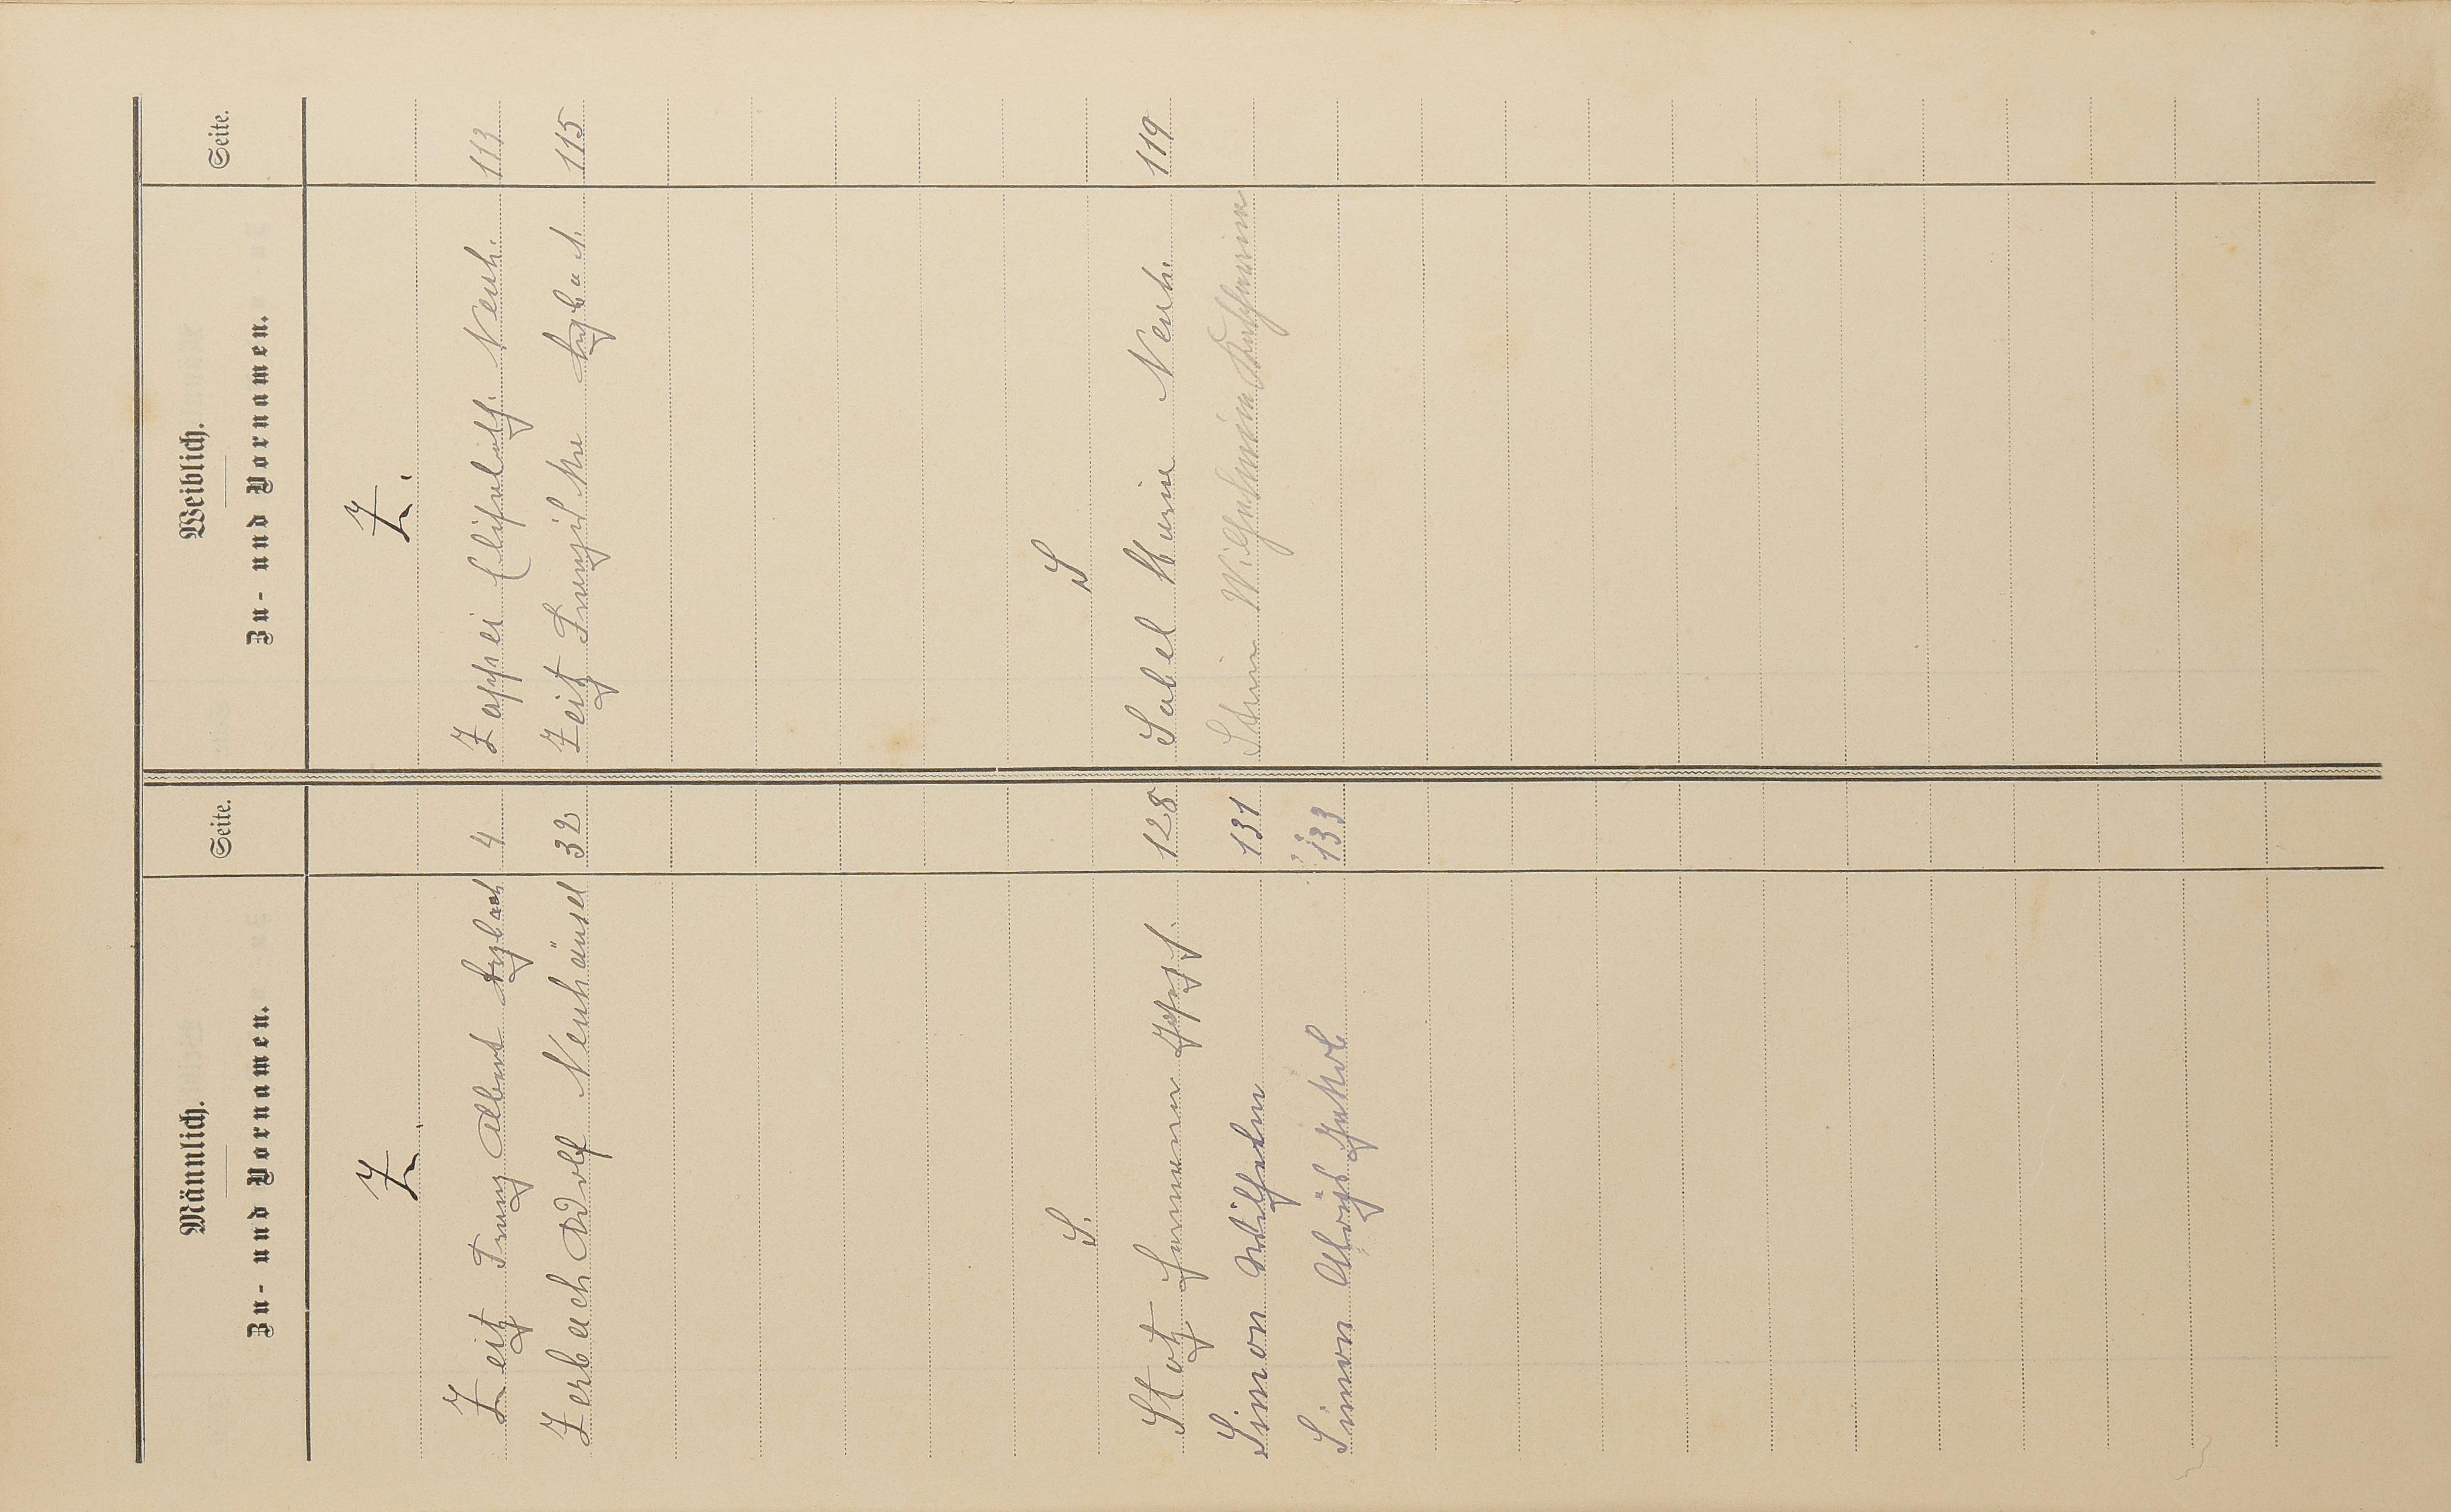 Männlich.
Zu- und Vornamen.
Seite.
Z.
Zeitz Franz Albert Arzbach 4
Zerbach Adolf Neuhäusel 32
S.
Stotz Hermann 128
Simon Wilhelm 131
Simon Aloys Jakob 133
Weiblich.
Zu- und Vornamen.
Seite.
Z.
Zappei Elisabeth. Neuh. 113
Zeitz Franziska Arzbach. 115
S
Sabel Maria Neuh. 119
Wilhelmina